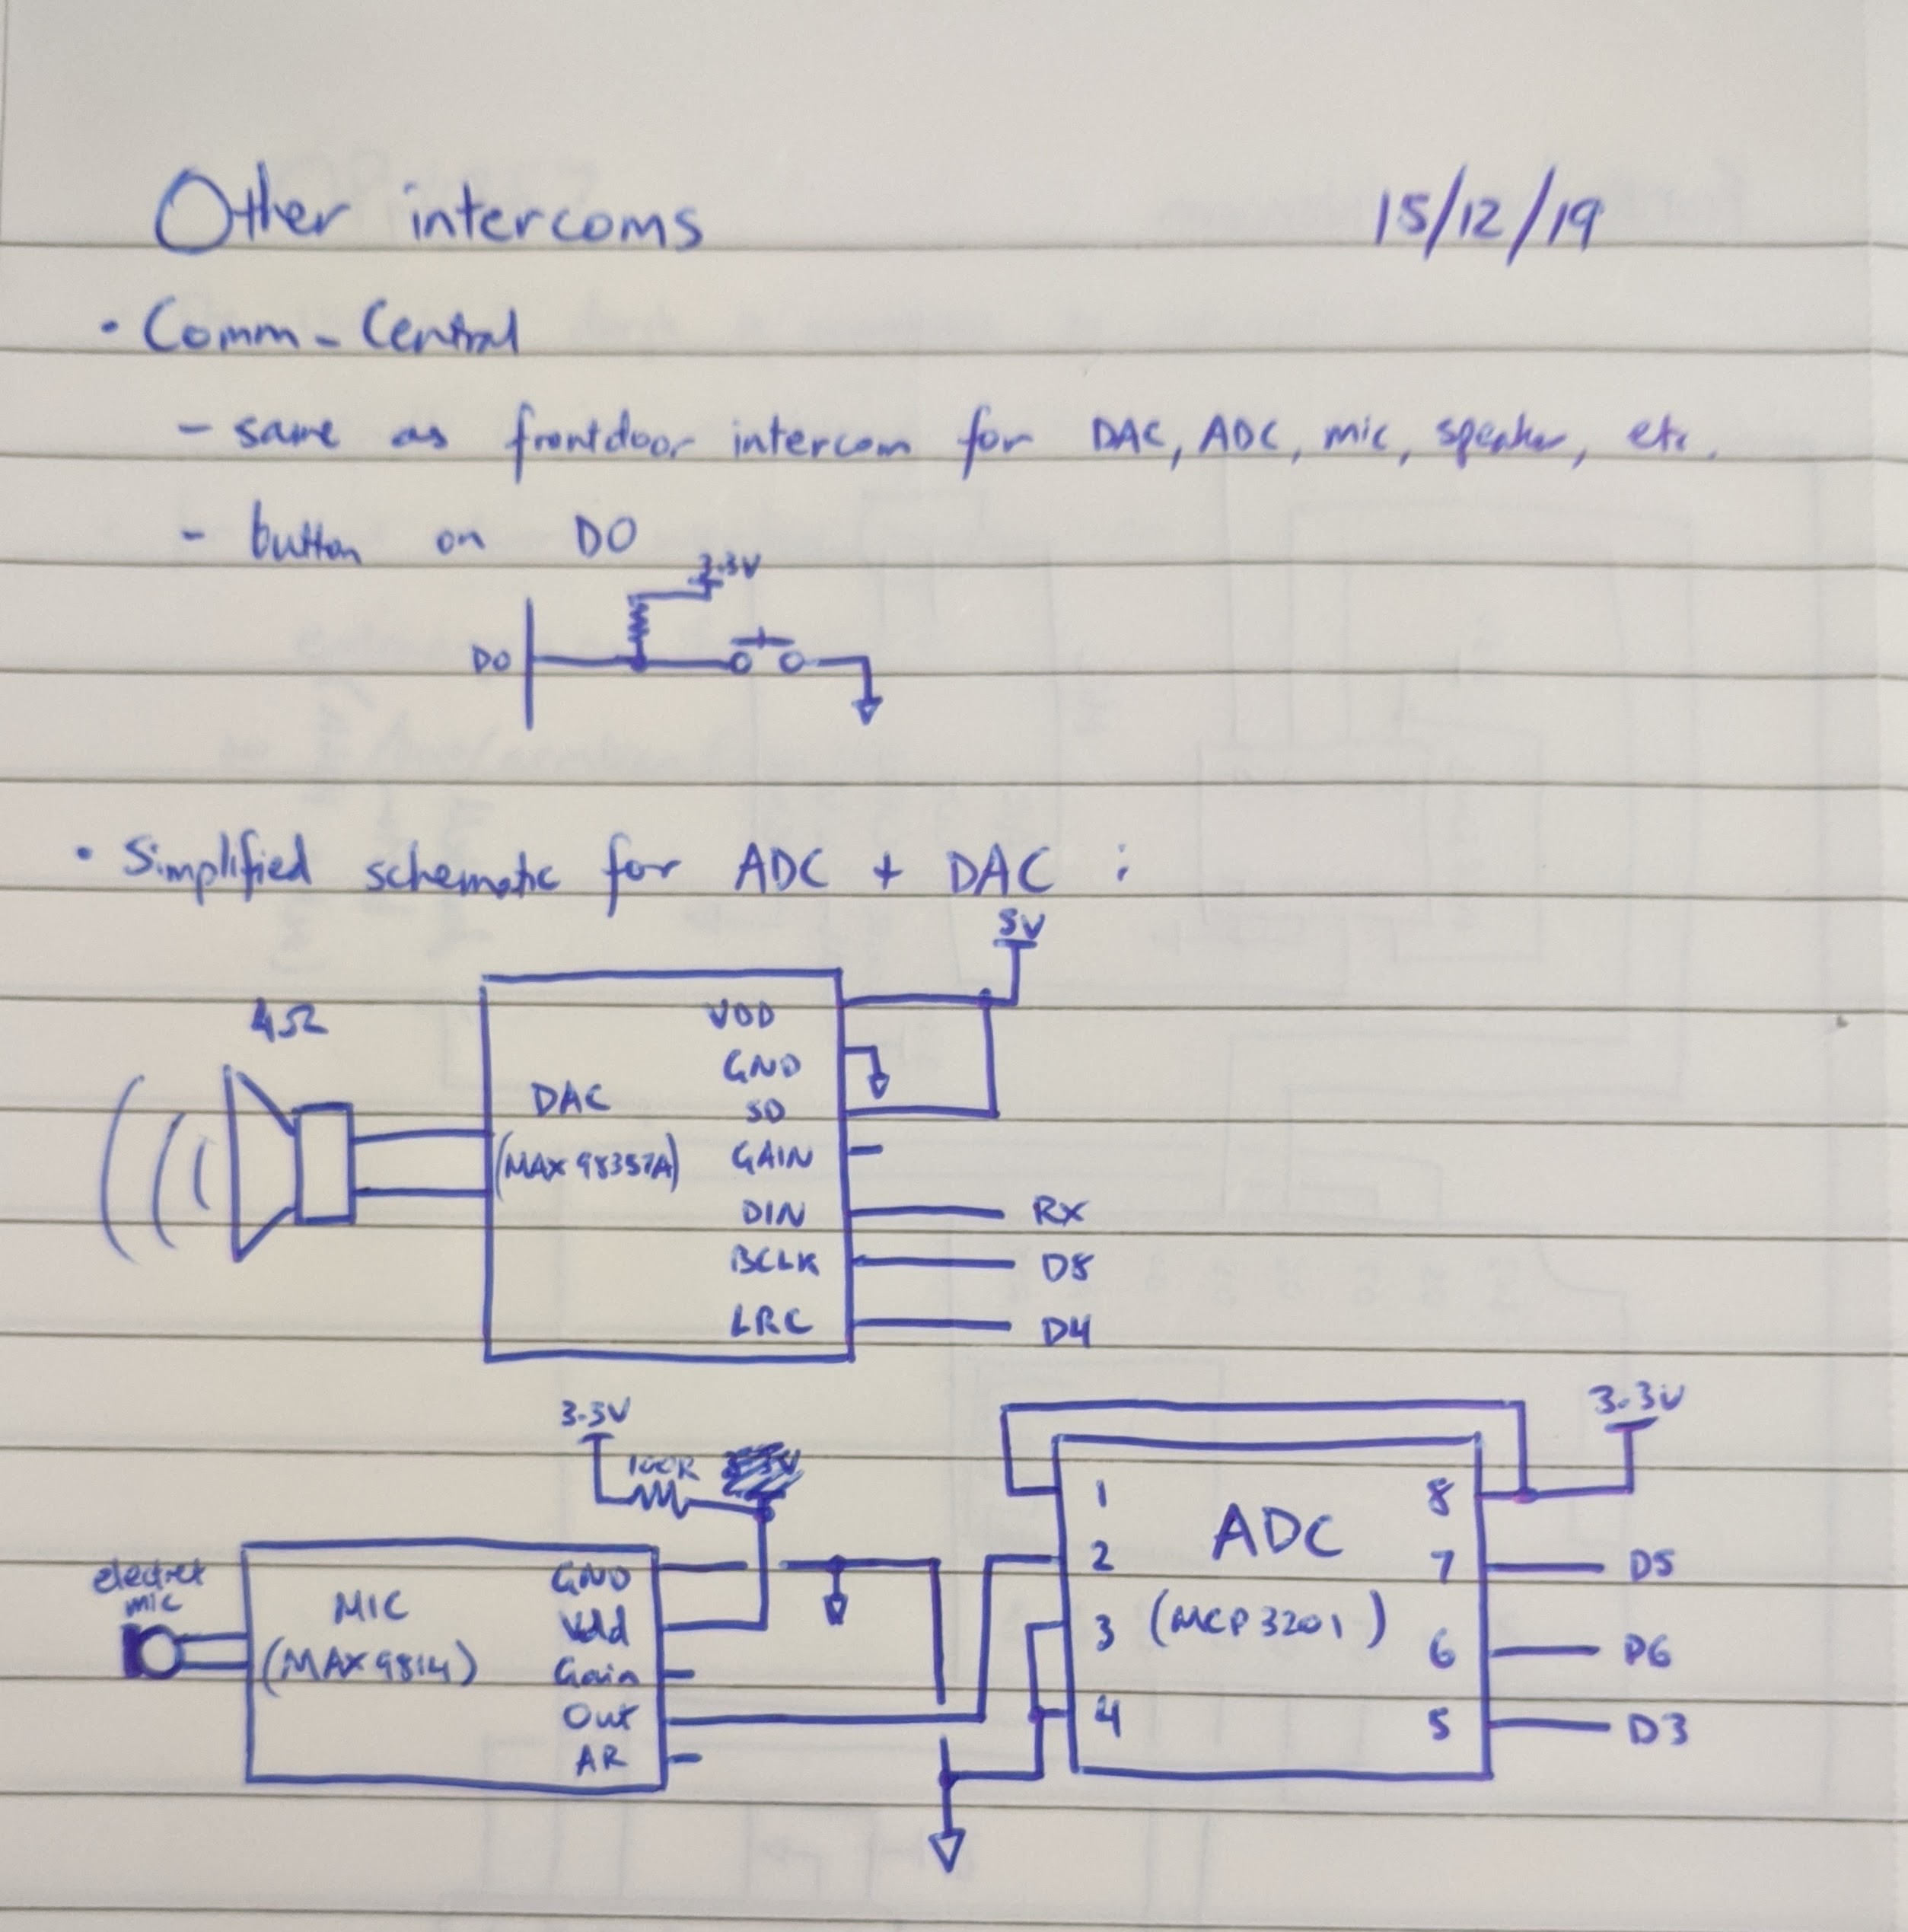 Other intercoms 15/12/19
• Comm-Central
- same as frontdoor intercom for DAC, ADC, mic, speaker, etc.
- button on D0
3.3V
D0
• Simplified schematic for ADC + DAC :
5V
4Ω
VDD
GND
DAC
SD
(MAX98357A)
GAIN
DIN RX
BCLK D8
LRC D4
3.3V
100R
3.3V
1 8
ADC
electret
mic
MIC
(MAX9814)
GND
Vdd
Gain
Out
AR
2 7 D5
3 (MCP3201) 6 D6
4 5 D3